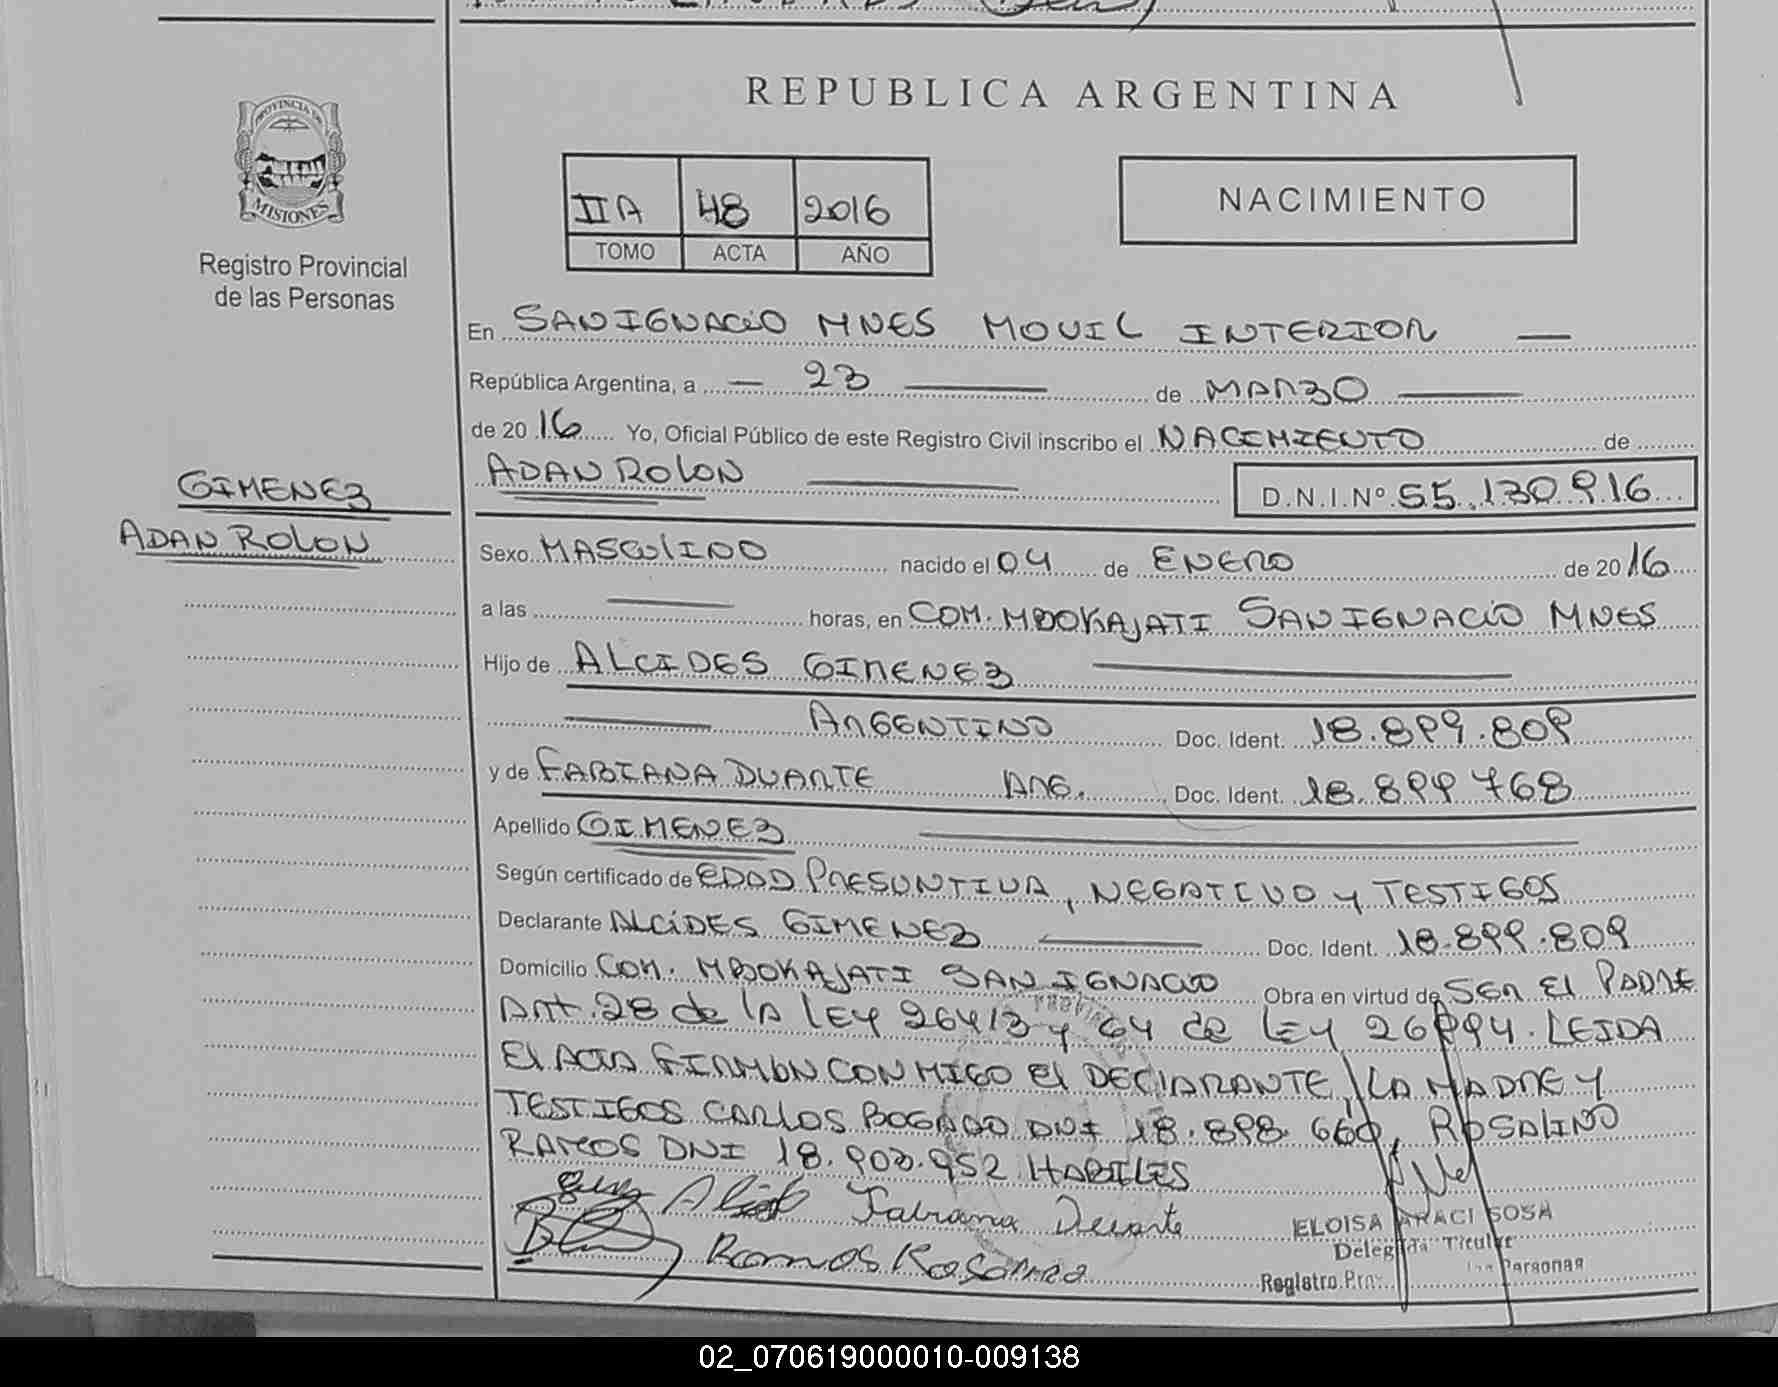 REPUBLICA ARGENTINA
PROVINCIA DE
MISIONES
Registro Provincial
de las Personas
IIA 48 2016
TOMO ACTA AÑO
NACIMIENTO
En SAN IGNACIO MNES MOVIL INTERIOR
República Argentina, a 23 de MARZO
de 2016 Yo, Oficial Público de este Registro Civil inscribo el NACIMIENTO de
ADAN ROLON D.N.I.Nº 55.130.916
GIMENEZ
ADAN ROLON
Sexo MASCULINO nacido el 04 de ENERO de 2016
a las horas, en COM. MBOKAJATI SAN IGNACIO MNES
Hijo de ALCIDES GIMENEZ
ARGENTINO Doc. Ident. 18.899.809
y de FABIANA DUARTE ARG. Doc. Ident. 18.899 768
Apellido GIMENEZ
Según certificado de EDAD PRESUNTIVA, NEGATIVO y TESTIGOS
Declarante ALCIDES GIMENEZ Doc. Ident. 18.899.809
Domicilio COM. MBOKAJATI SAN IGNACIO Obra en virtud de SER El PADRE
Art. 28 de la LEY 26413 y 64 de LEY 26994. LEIDA
El ACTA FIRMAN CONMIGO El DECLARANTE, LA MADRE Y
TESTIGOS CARLOS BOGADO DNI 18.898.660, ROSALINO
RAMOS DNI 18.902.952 HABILES
Fabiana Duarte
Ramos
ELOISA ARACI SOSA
Delegada Titular
Registro Prov. las Personas
02_070619000010-009138